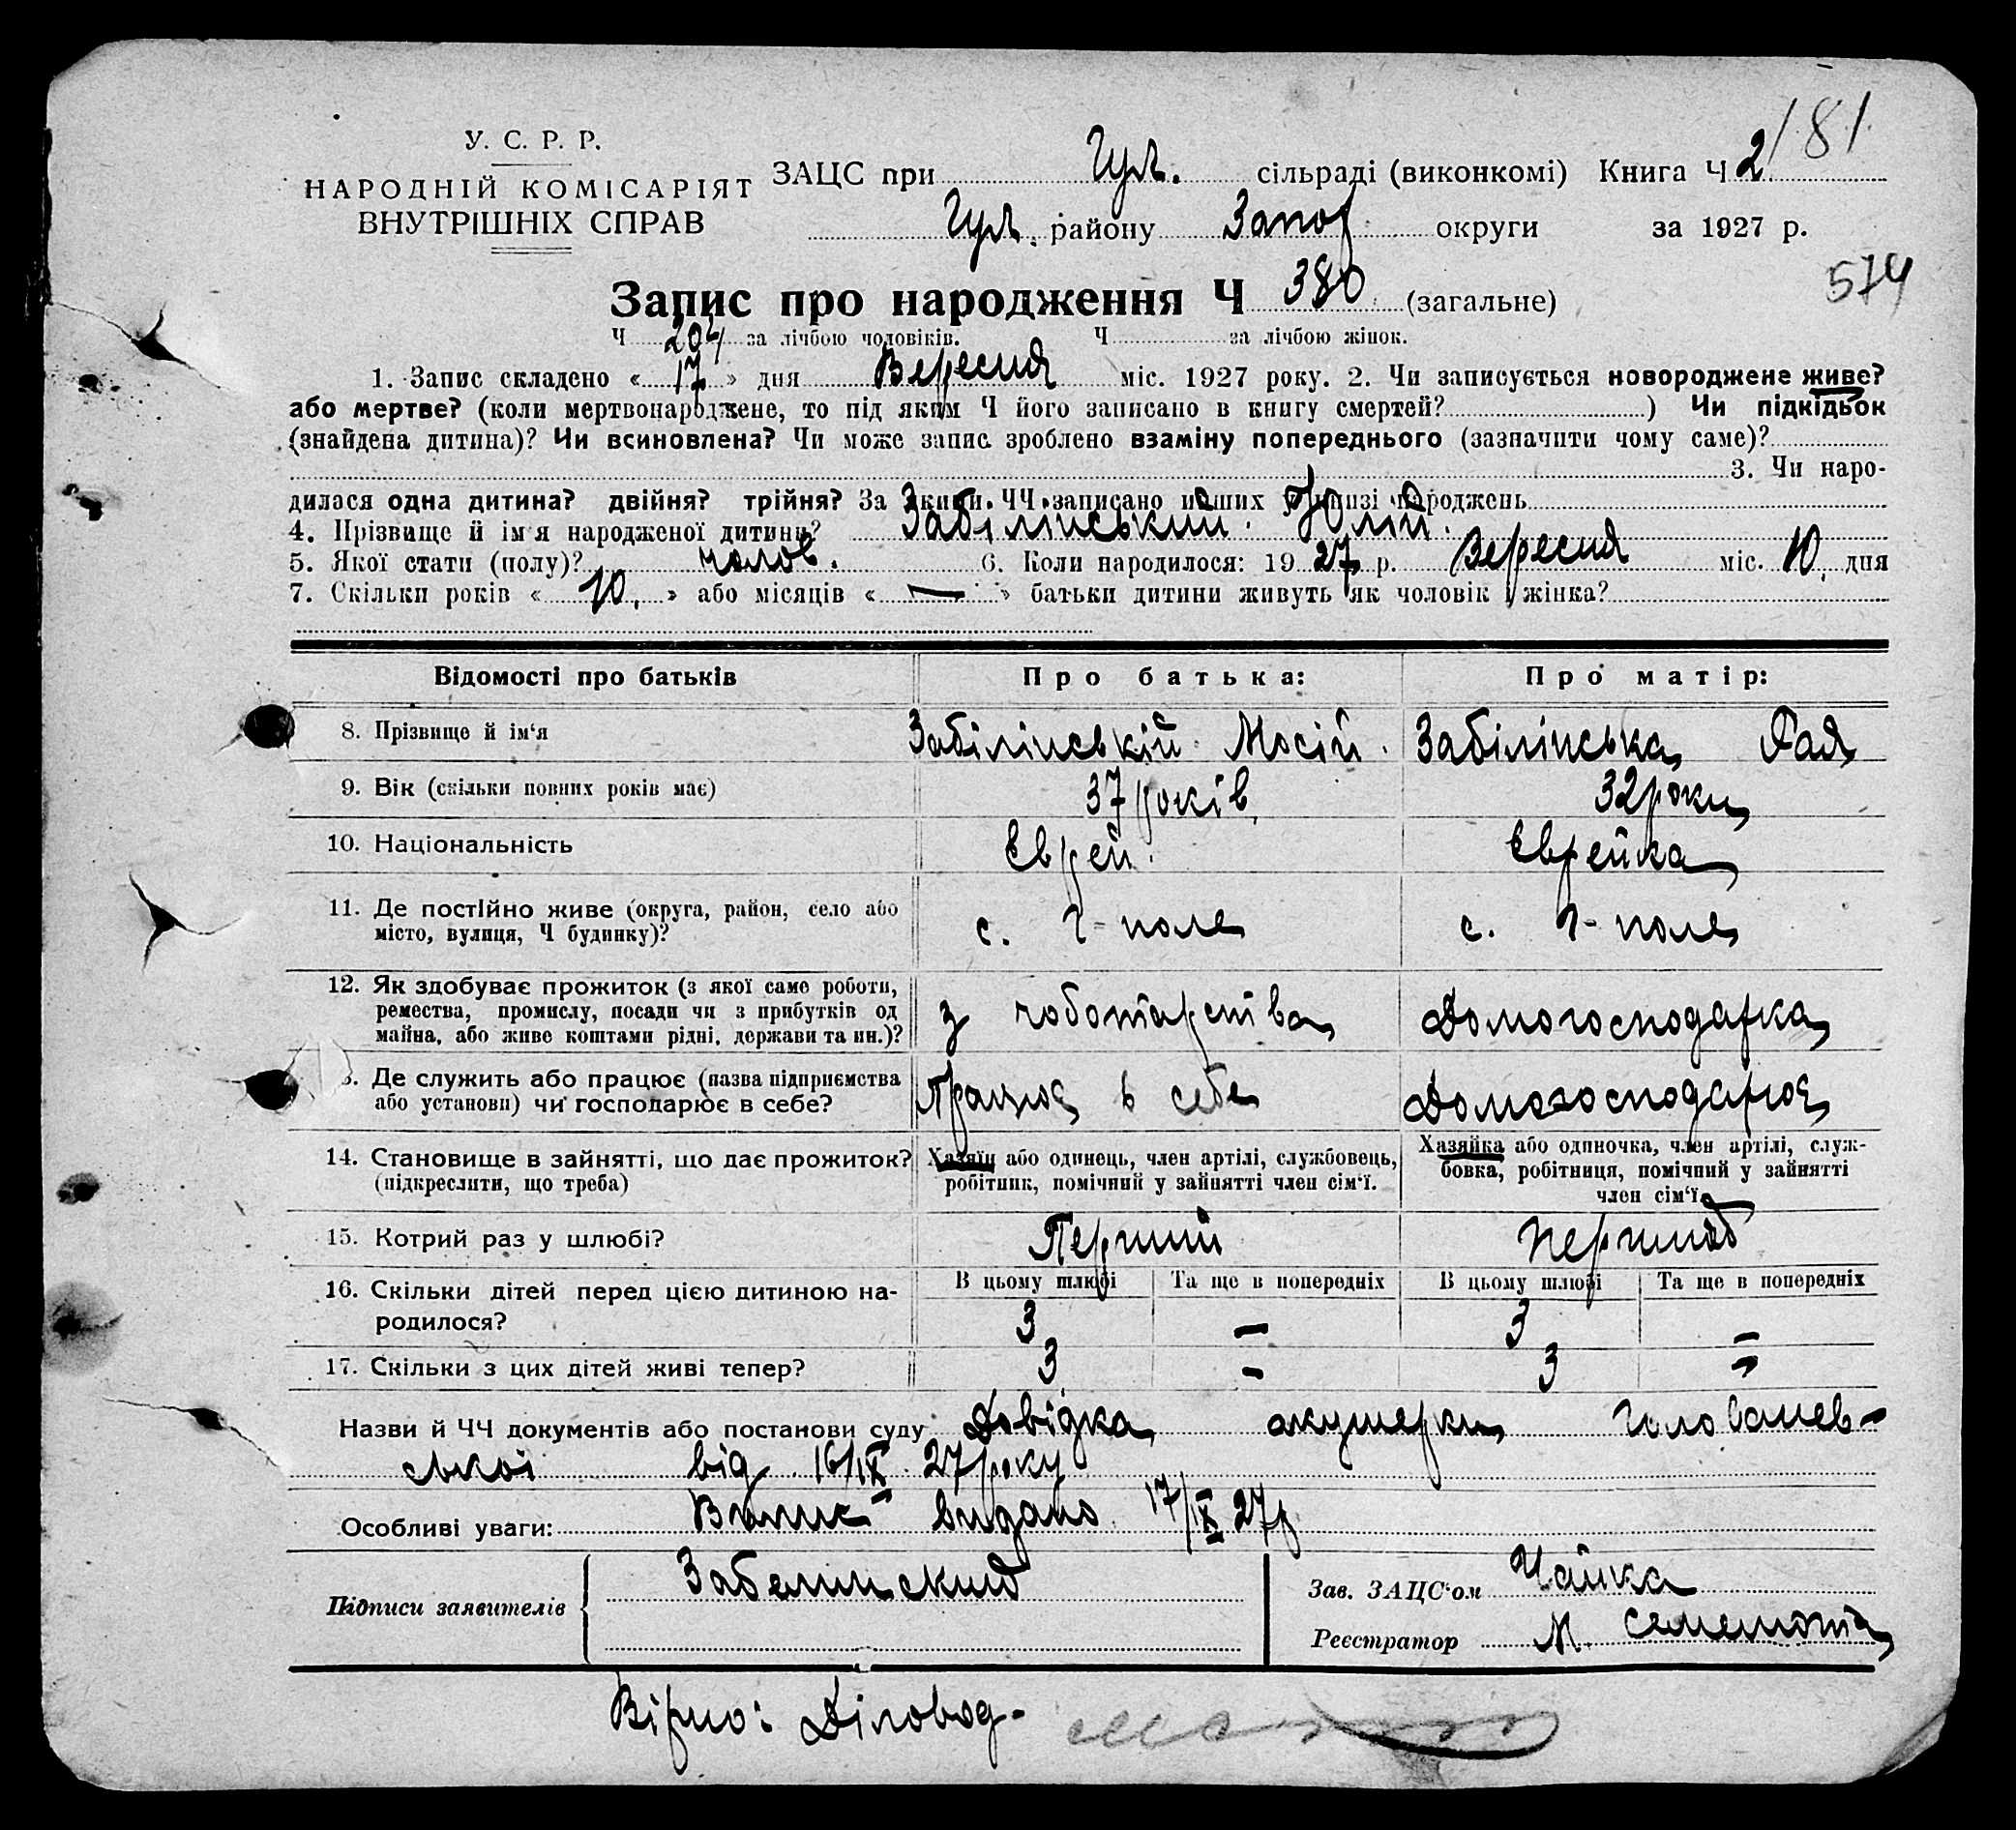 181
У. С. Р. Р.
НАРОДНІЙ КОМІСАРІЯТ
ВНУТРІШНІХ СПРАВ
ЗАЦС при Гул. сільраді (виконкомі) Книга Ч 2
Гул. району Запор округи за 1927 р.
574
Запис про народження Ч 380 (загальне)
Ч 204 за лічбою чоловіків. Ч за лічбою жінок.
1. Запис складено « 17 » дня Вересня міс. 1927 року. 2. Чи записується новороджене живе?
або мертве? (коли мертвонароджене, то під яким Ч його записано в книгу смертей? ) Чи підкідьок
(знайдена дитина)? Чи всиновлена? Чи може запис зроблено взаміну попереднього (зазначити чому саме)?
3. Чи наро-
дилася одна дитина? двійня? трійня? За якими ЧЧ записано инших народжень
4. Прізвище й ім'я народженої дитини? Забілінський Юлій.
5. Якої стати (полу)? чолов. 6. Коли народилося: 1927 р. Вересня міс. 10. дня
7. Скільки років « 10. » або місяців « — » батьки дитини живуть як чоловік і жінка?
Відомості про батьків Про батька: Про матір:
8. Прізвище й ім'я Забілінській Мосій. Забілінська Рая
9. Вік (скільки повних років має) 37 років 32 роки
10. Національність Єврей. Єврейка
11. Де постійно живе (округа, район, село або
місто, вулиця, Ч будинку)? с. Г-поле с. Г-поле
12. Як здобуває прожиток (з якої саме роботи,
ремества, промислу, посади чи з прибутків од
майна, або живе коштами рідні, держави та ин.)? з чоботарства Домогосподарка
Де служить або працює (назва підприємства
або установи) чи господарює в себе? Працює в себе Домогосподарює
14. Становище в зайнятті, що дає прожиток?
(підкреслити, що треба)
Хазяїн або одинець, член артілі, службовець,
робітник, помічний у зайнятті член сім'ї.
Хазяйка або одиночка, член артілі, служ-
бовка, робітниця, помічний у зайнятті
член сім'ї.
15. Котрий раз у шлюбі? Перший первый
16. Скільки дітей перед цією дитиною на-
родилося?
В цьому шлюбі Та ще в попередніх В цьому шлюбі Та ще в попередніх
3 — 3 —
17. Скільки з цих дітей живі тепер? 3 - 3 -
Назви й ЧЧ документів або постанови суду Довідка акушерки Головачев-
ської від 16/IX 27 року
Особливі уваги: Випис видано 17/IX 27р
Підписи заявителів Забелинский
Зав. ЗАЦС'ом Чайка
Реєстратор М.
Вірно: Діловод-